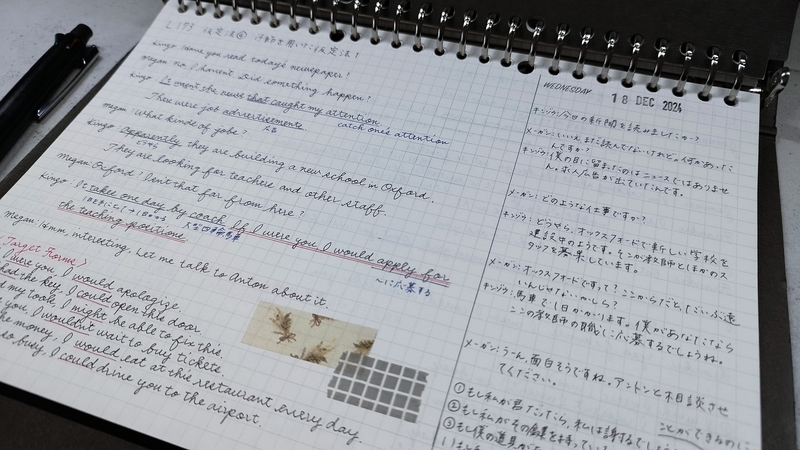 L173 仮定法④ 助動詞を用いた仮定法!
Kingo: Have you read today's newspaper?
Megan: No, I haven't. Did something happen?
Kingo: It wasn't the news that caught my attention.
catch one's attention
There were job advertisements.
広告
Megan: What kinds of jobs?
Kingo: Apparently they are building a new school in Oxford.
どうやら
They are looking for teachers and other staff.
Megan: Oxford? Isn't that far from here?
Kingo: It takes one day by coach. If I were you, I would apply for
大型四輪馬車
〜に応募する
the teaching positions.
Megan: Hmm, interesting. Let me talk to Anton about it.
<Target Forms>
I were you, I would apologize.
had the key, I could open this door.
my tools, I might be able to fix this.
you, I wouldn't wait to buy tickets.
the money, I would eat at this restaurant every day.
so busy, I could drive you to the airport.
WEDNESDAY
18 DEC 2024
キンゴ:今日の新聞を読みましたか?
メーガン:いいえ、まだ読んでないけれど。何かあったんですか?
キンゴ:僕の目に留まったのはニュースではありません。求人広告が出ていたんです。
メーガン:どのような仕事ですか?
キンゴ:どうやら、オックスフォードで新しい学校を
建設中のようです。そこが教師とほかのス
タッフを募集しています。
メーガン:オックスフォードですって?ここからだと、だいぶ遠
いんじゃないかしら?
キンゴ:馬車で1日かかります。僕があなたなら
ここの教師の職に応募するでしょうね。
メーガン:うーん、面白そうですね。アントンと相談させ
てください。
①もし私が君だったら、私は謝るでしょう
②もし私がその鍵を持ってい
③もし僕の道具が
ことができるのに